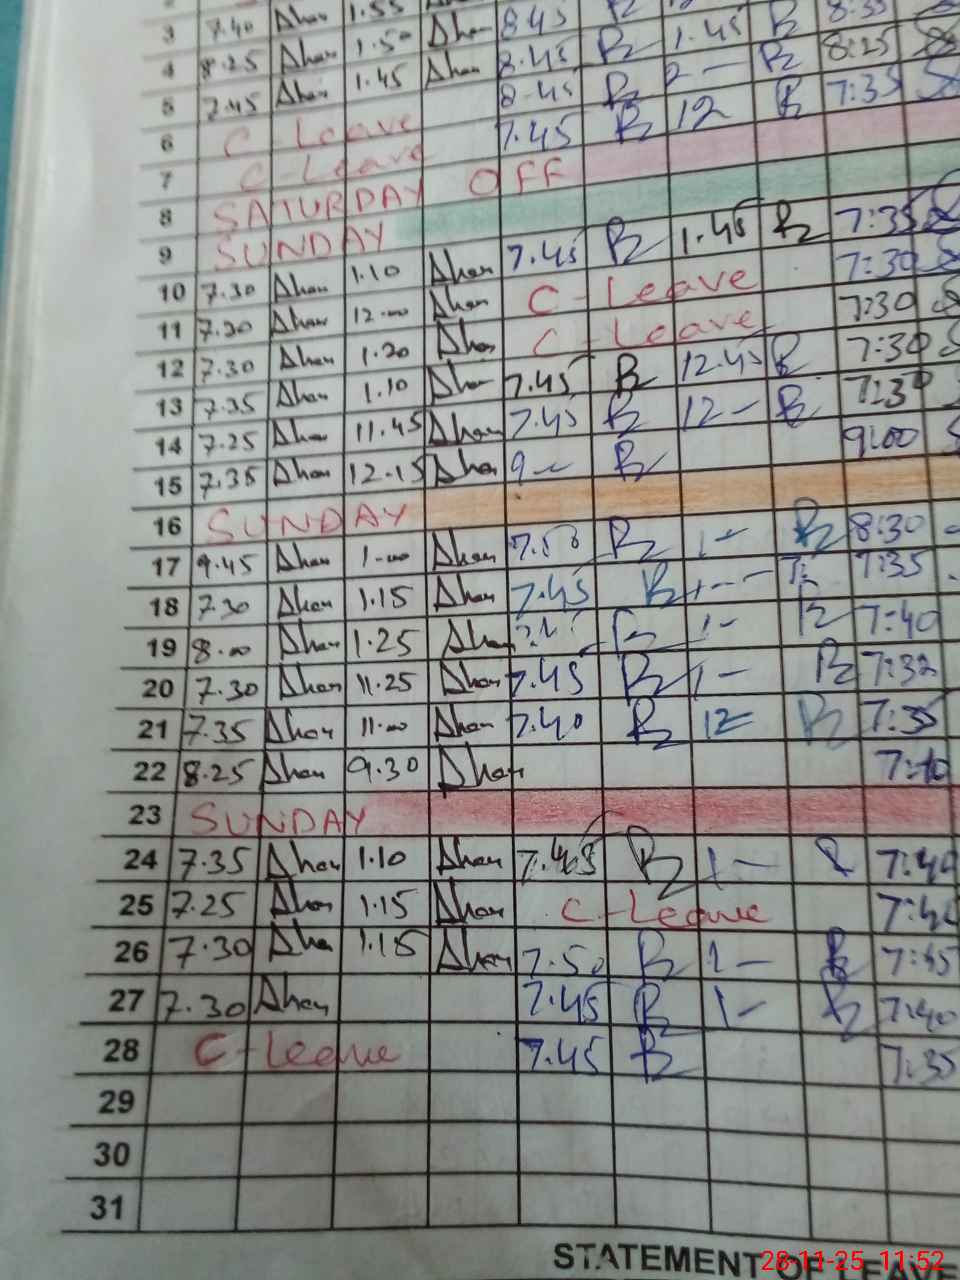 3 7.40 Dhan 1.55 8.45 R 8:35
4 8.25 Dhan 1.50 Dhan 8.45 R 1.45 R 8:25
5 7.45 Dhan 1.45 Dhan 8.45 R 2 — R 7:35
6 C - Leave 7.45 R 12 R
7 C Leave
8 SATURDAY OFF
9 SUNDAY
10 7.30 Dhan 1.10 Dhan 7.45 R 1.45 R 7:35
11 7.30 Dhan 12.00 Dhan C - Leave 7:30
12 7.30 Dhan 1.20 Dhan C - Leave 7:30
13 7.35 Dhan 1.10 Dhan 7.45 R 12.45 R 7:30
14 7.25 Dhan 11.45 Dhan 7.45 R 12 - R 7:30
15 7.35 Dhan 12.15 Dhan 9 — R 9:00
16 SUNDAY
17 9.45 Dhan 1.00 Dhan 7.50 R 1 - R 8:30
18 7.30 Dhan 1.15 Dhan 7.45 R 1 - - R 7:35
19 8.00 Dhan 1.25 Dhan R 1 - R 7:40
20 7.30 Dhan 11.25 Dhan 7.45 R 1 - R 7:32
21 7.35 Dhan 11.00 Dhan 7.40 R 12 - R 7:35
22 8.25 Dhan 9.30 Dhan 7:40
23 SUNDAY
24 7.35 Dhan 1.10 Dhan 7.45 R 1 — R 7:40
25 7.25 Dhan 1.15 Dhan C - Leave
26 7.30 Dhan 1.15 Dhan 7.50 R 1 — R 7:45
27 7.30 Dhan 7.45 R 1 - R 7:40
28 C - Leave 7.45 R 7:35
29
30
31
STATEMENT OF LEAVE
28-11-25 11:52